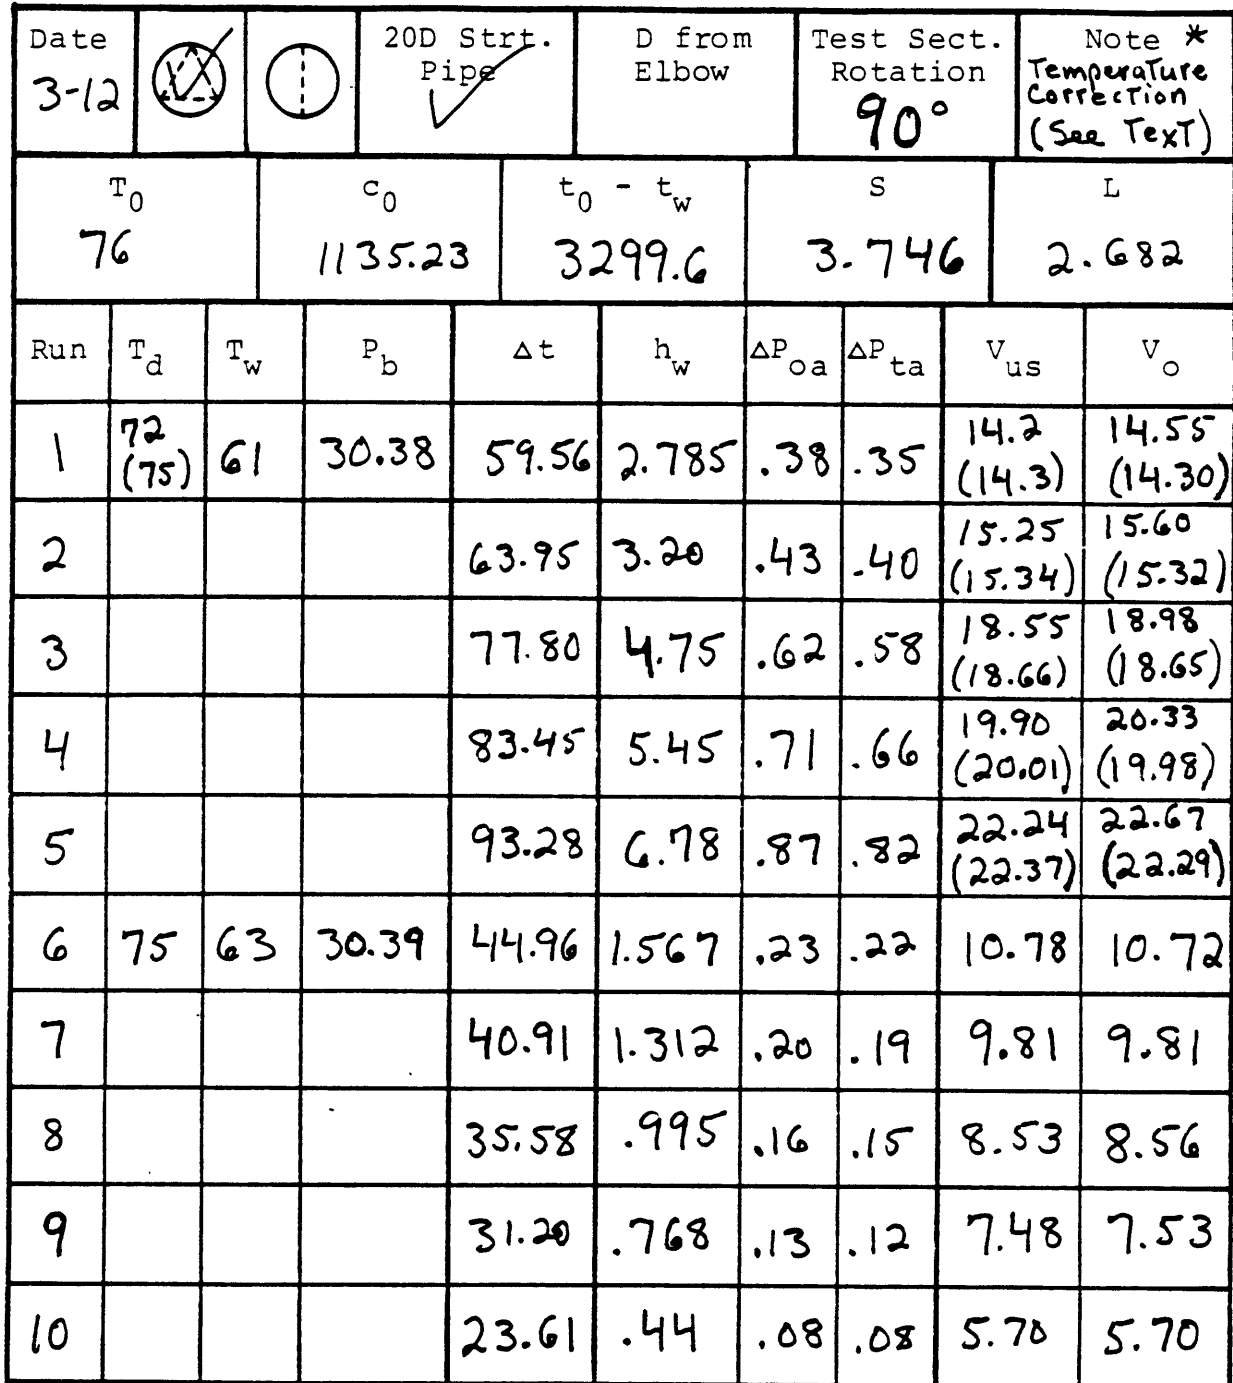 Date 20D Strt. D from Test Sect. Note *
3-12 Pipe Elbow Rotation Temperature
✓ 90° Correction
(See Text)
T0 c0 t0 - tw S L
76 1135.23 3299.6 3.746 2.682
Run Td Tw Pb Δt hw ΔPoa ΔPta Vus Vo
1 72 61 30.38 59.56 2.785 .38 .35 14.2 14.55
(75) (14.3) (14.30)
2 63.95 3.20 .43 .40 15.25 15.60
(15.34) (15.32)
3 77.80 4.75 .62 .58 18.55 18.98
(18.66) (18.65)
4 83.45 5.45 .71 .66 19.90 20.33
(20.01) (19.98)
5 93.28 6.78 .87 .82 22.24 22.67
(22.37) (22.29)
6 75 63 30.39 44.96 1.567 .23 .22 10.78 10.72
7 40.91 1.312 .20 .19 9.81 9.81
8 35.58 .995 .16 .15 8.53 8.56
9 31.20 .768 .13 .12 7.48 7.53
10 23.61 .44 .08 .08 5.70 5.70